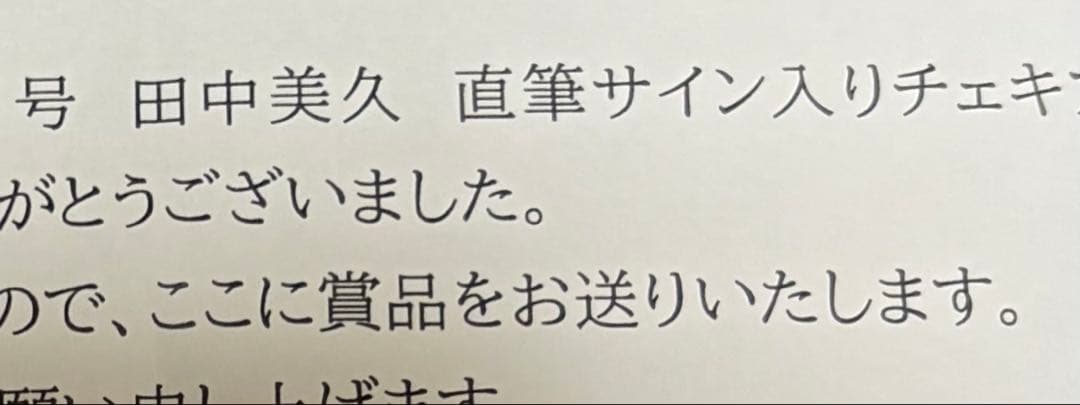 号 田中美久 直筆サイン入りチェキ
がとうございました。
ので、ここに賞品をお送りいたします。
願い申し上げます